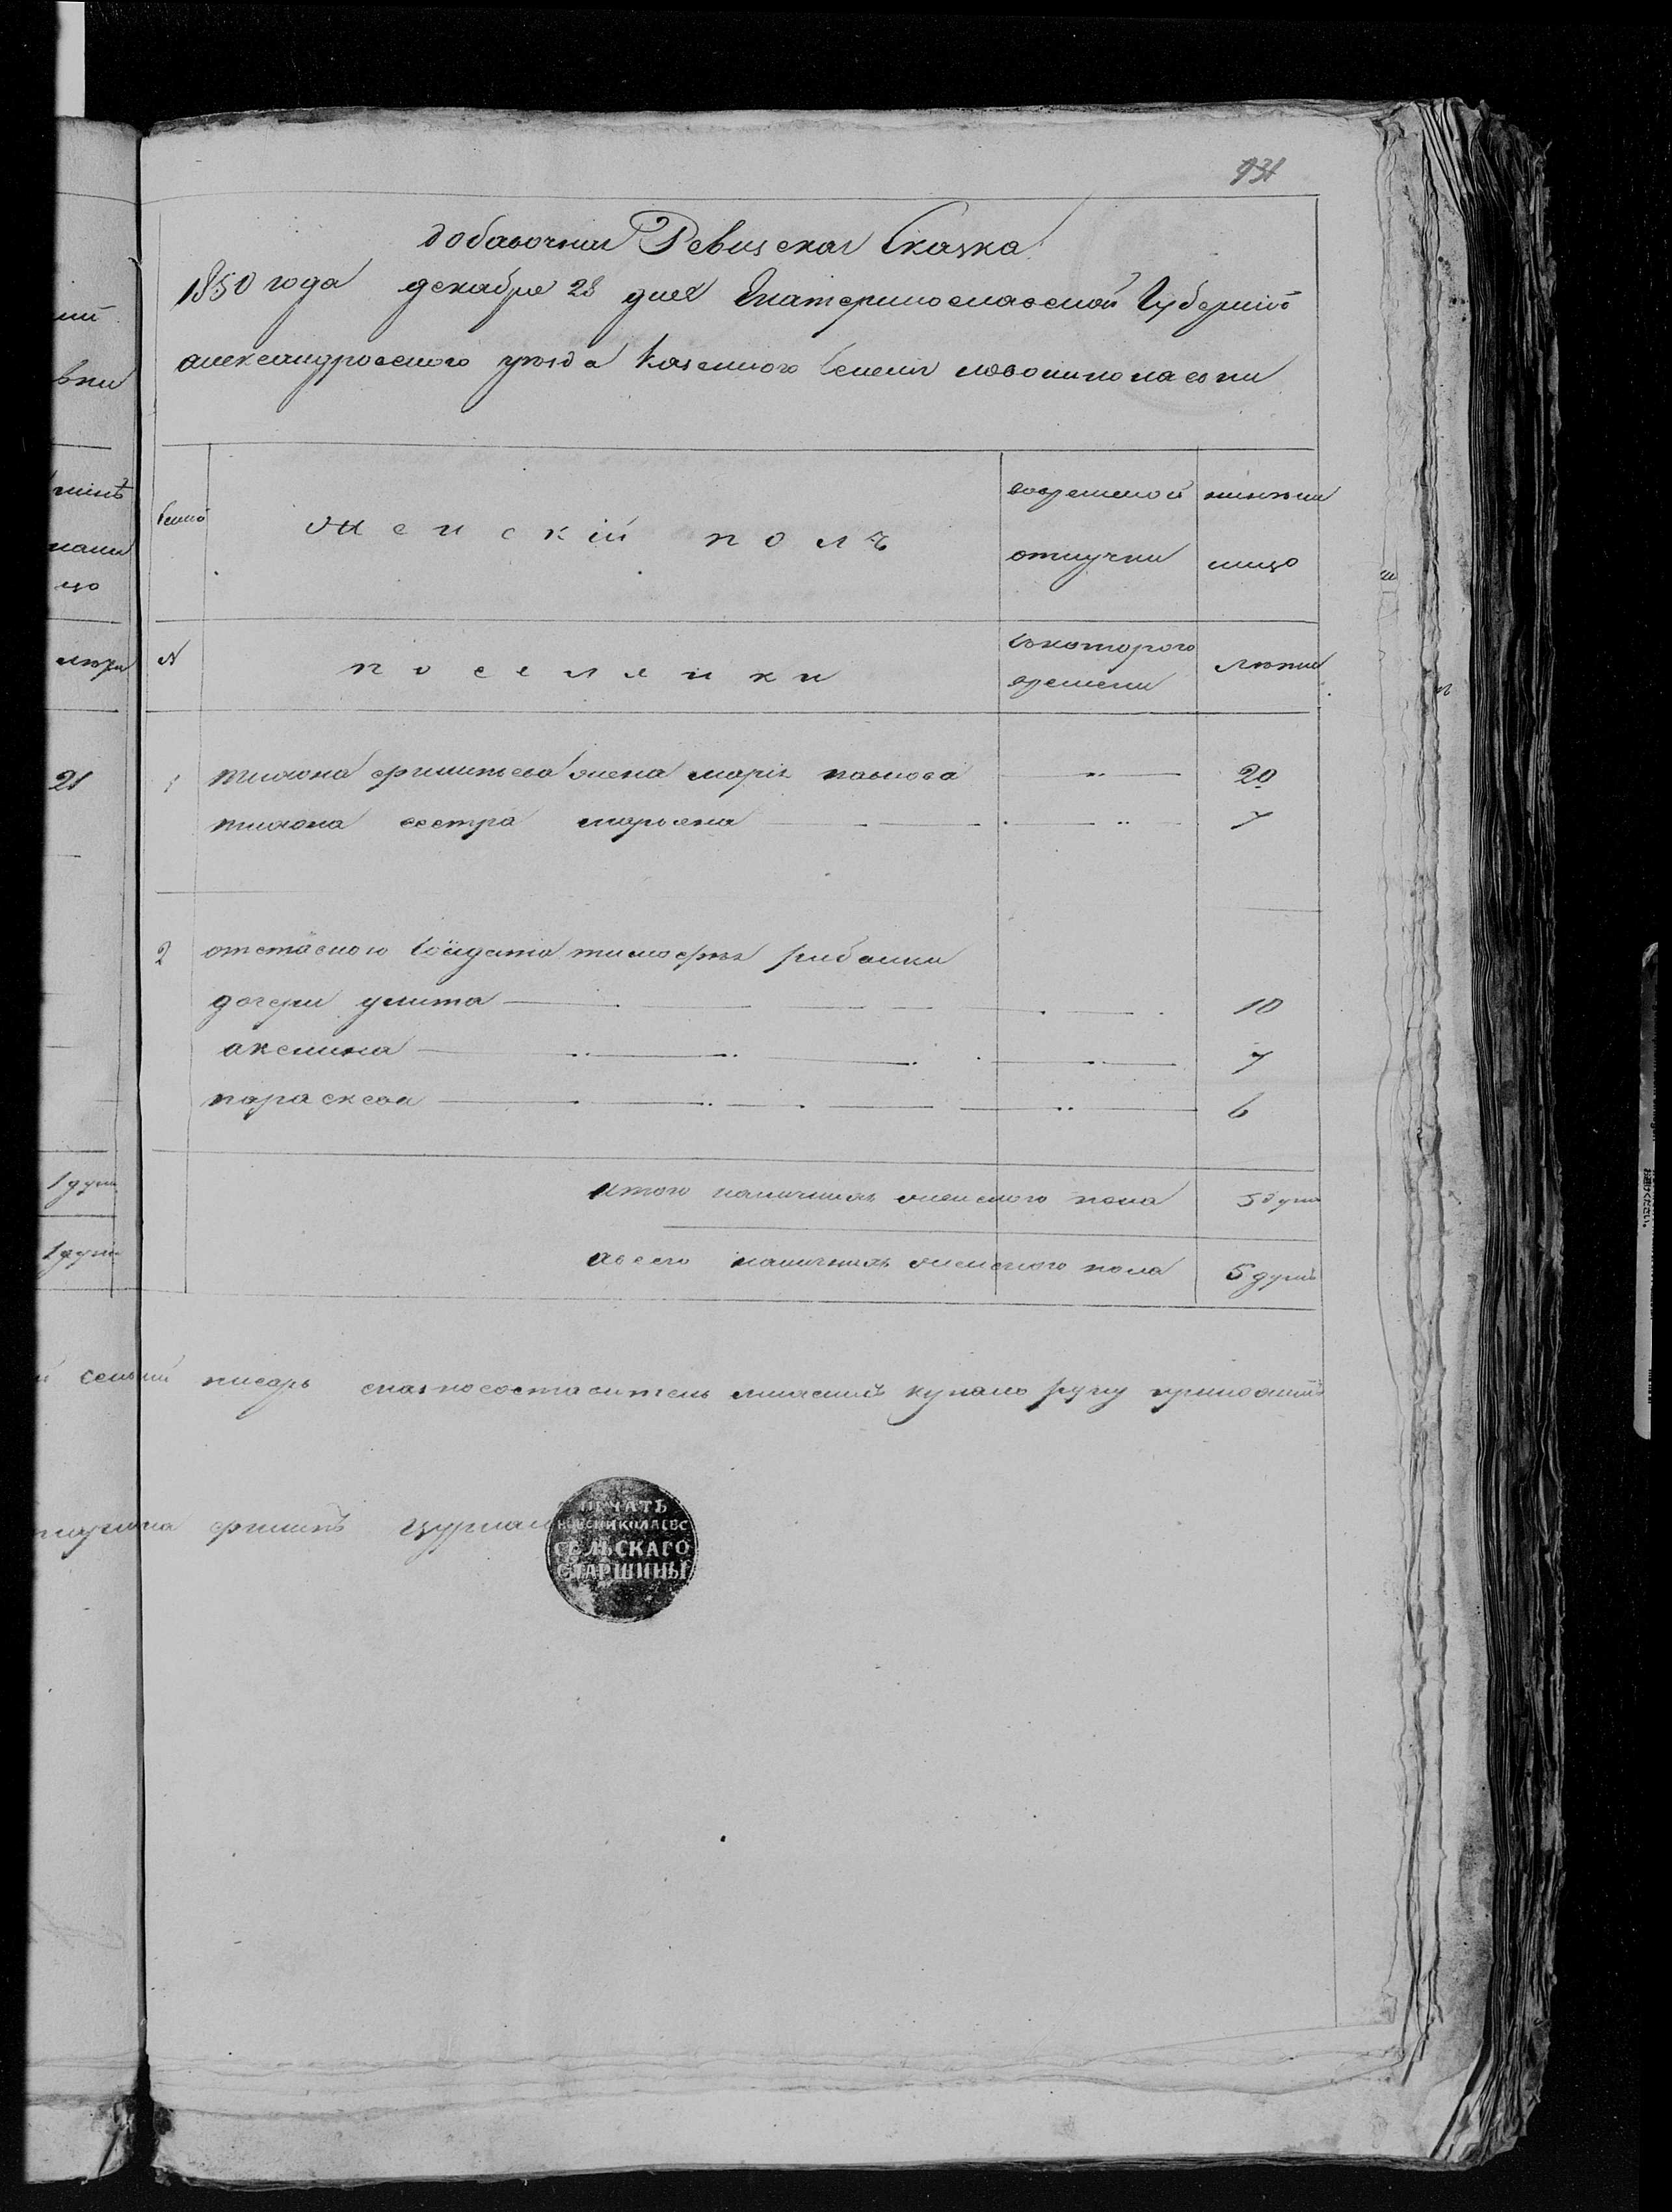 931
добавочная Ревизская Сказка
1850 года декабря 28 дня Екатеринославской Губерніи
александровского уезда Казенного Селенія новониколаевки
Семей
женскій полъ
вовременной отлучки
ниневни лицо
№
поселянки
Скоторого времени
лета
1 тихона филипева жена марія павлова 20
тихона сестра марьяна 7
2 отставного Солдата тимофея рибалки
дочери улита 10
аксинia 7
параскева 6
итого наличных женского пола 5 душ
авсего наличных женского пола 5 душъ
писарь сказкосоставитель купало руку приложилъ
филипъ цуркан
ПЕЧАТЬ
НОВОНИКОЛАЕВС
СЕЛЬСКАГО
СТАРШИНЫ
21
1 душ
1 душ